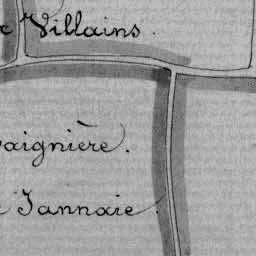 Villains.
aignière.
Jannaie.